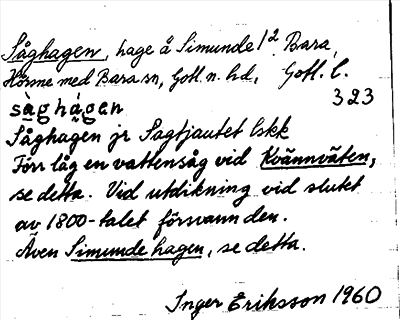 Såghagen, hage å Simunde 1² Bara,
Hörsne med Bara sn, Gotl. n. hd, Gotl. l.
323
såghagen
Såghagen jr Sagtjautet lskk
Förr låg en vattensåg vid Kvännväten,
se detta. Vid utdikning vid slutet
av 1800-talet försvann den.
Även Simunde hagen, se detta.
Inger Eriksson 1960